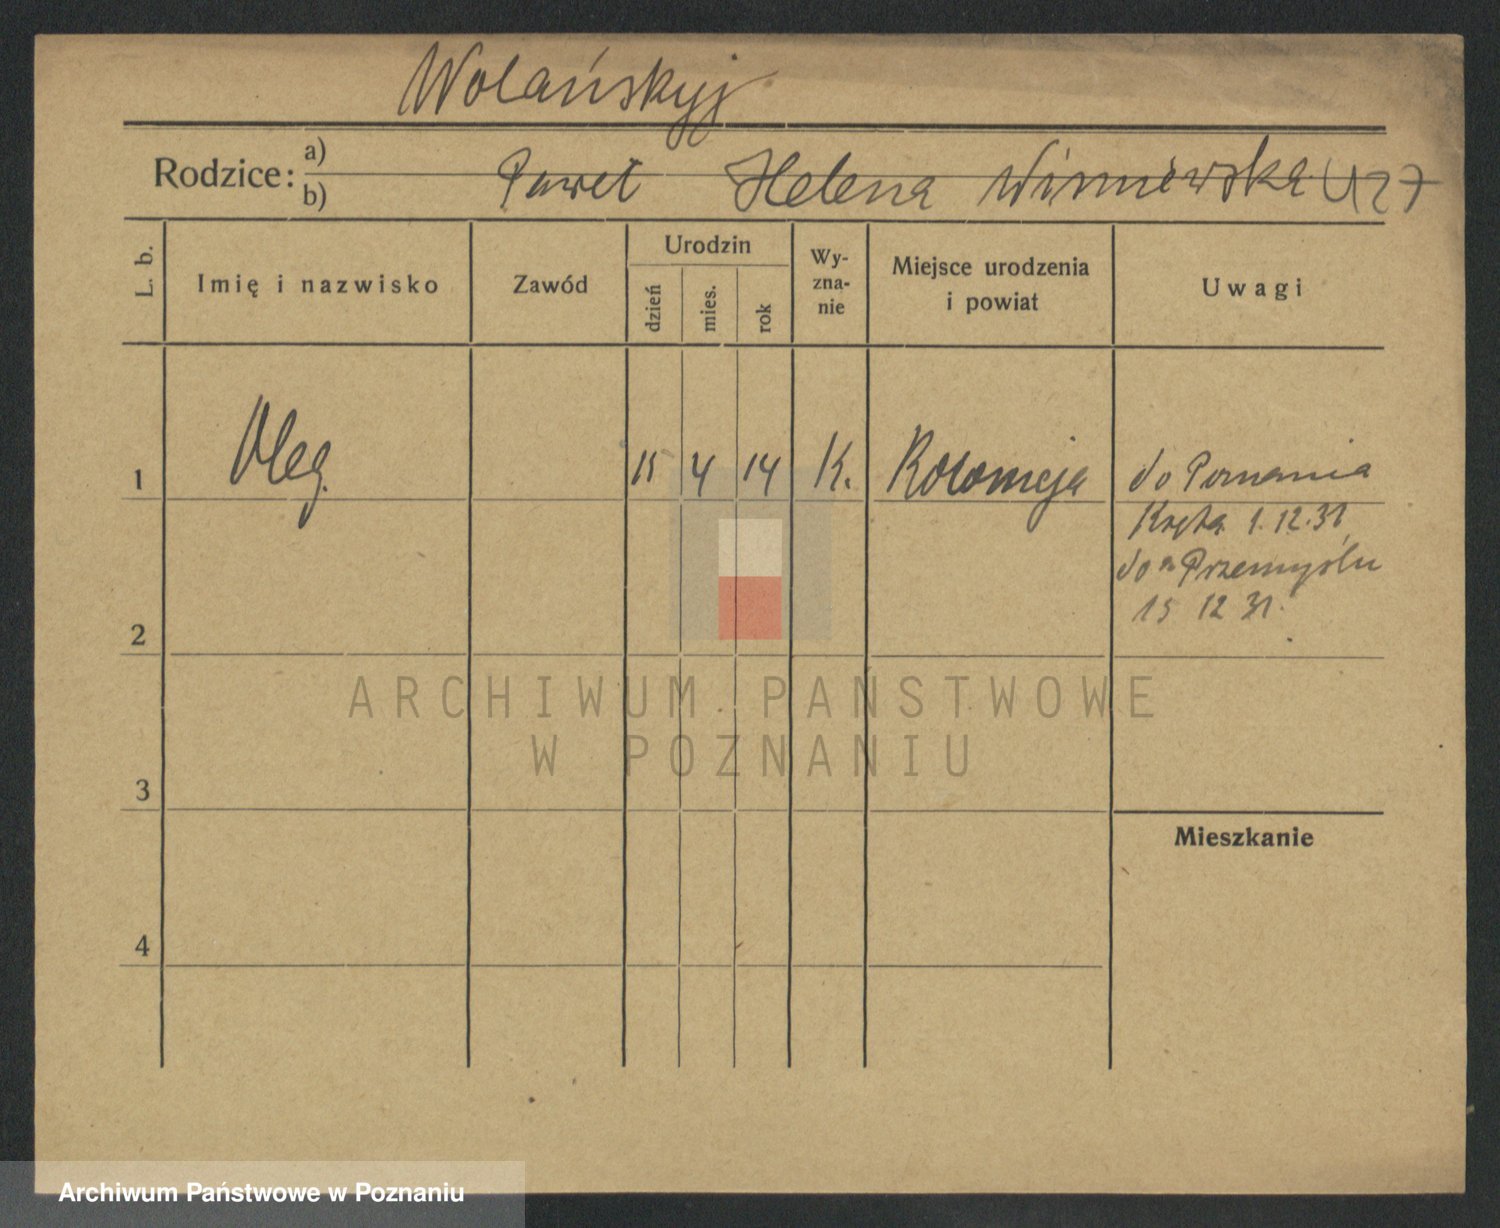 Wolańskyj
Rodzice: a)
b) Paweł Helena Wiśniewska U 27
L. b.
Imię i nazwisko
Zawód
Urodzin
dzień
mies.
rok
Wy-
zna-
nie
Miejsce urodzenia
i powiat
Uwagi
1 Oleg 15 4 14 K. Kołomeja do Poznania
Kręta 1.12.31
do Przemyślu
15 12 31.
2
ARCHIWUM PAŃSTWOWE
W POZNANIU
3
Mieszkanie
4
Archiwum Państwowe w Poznaniu